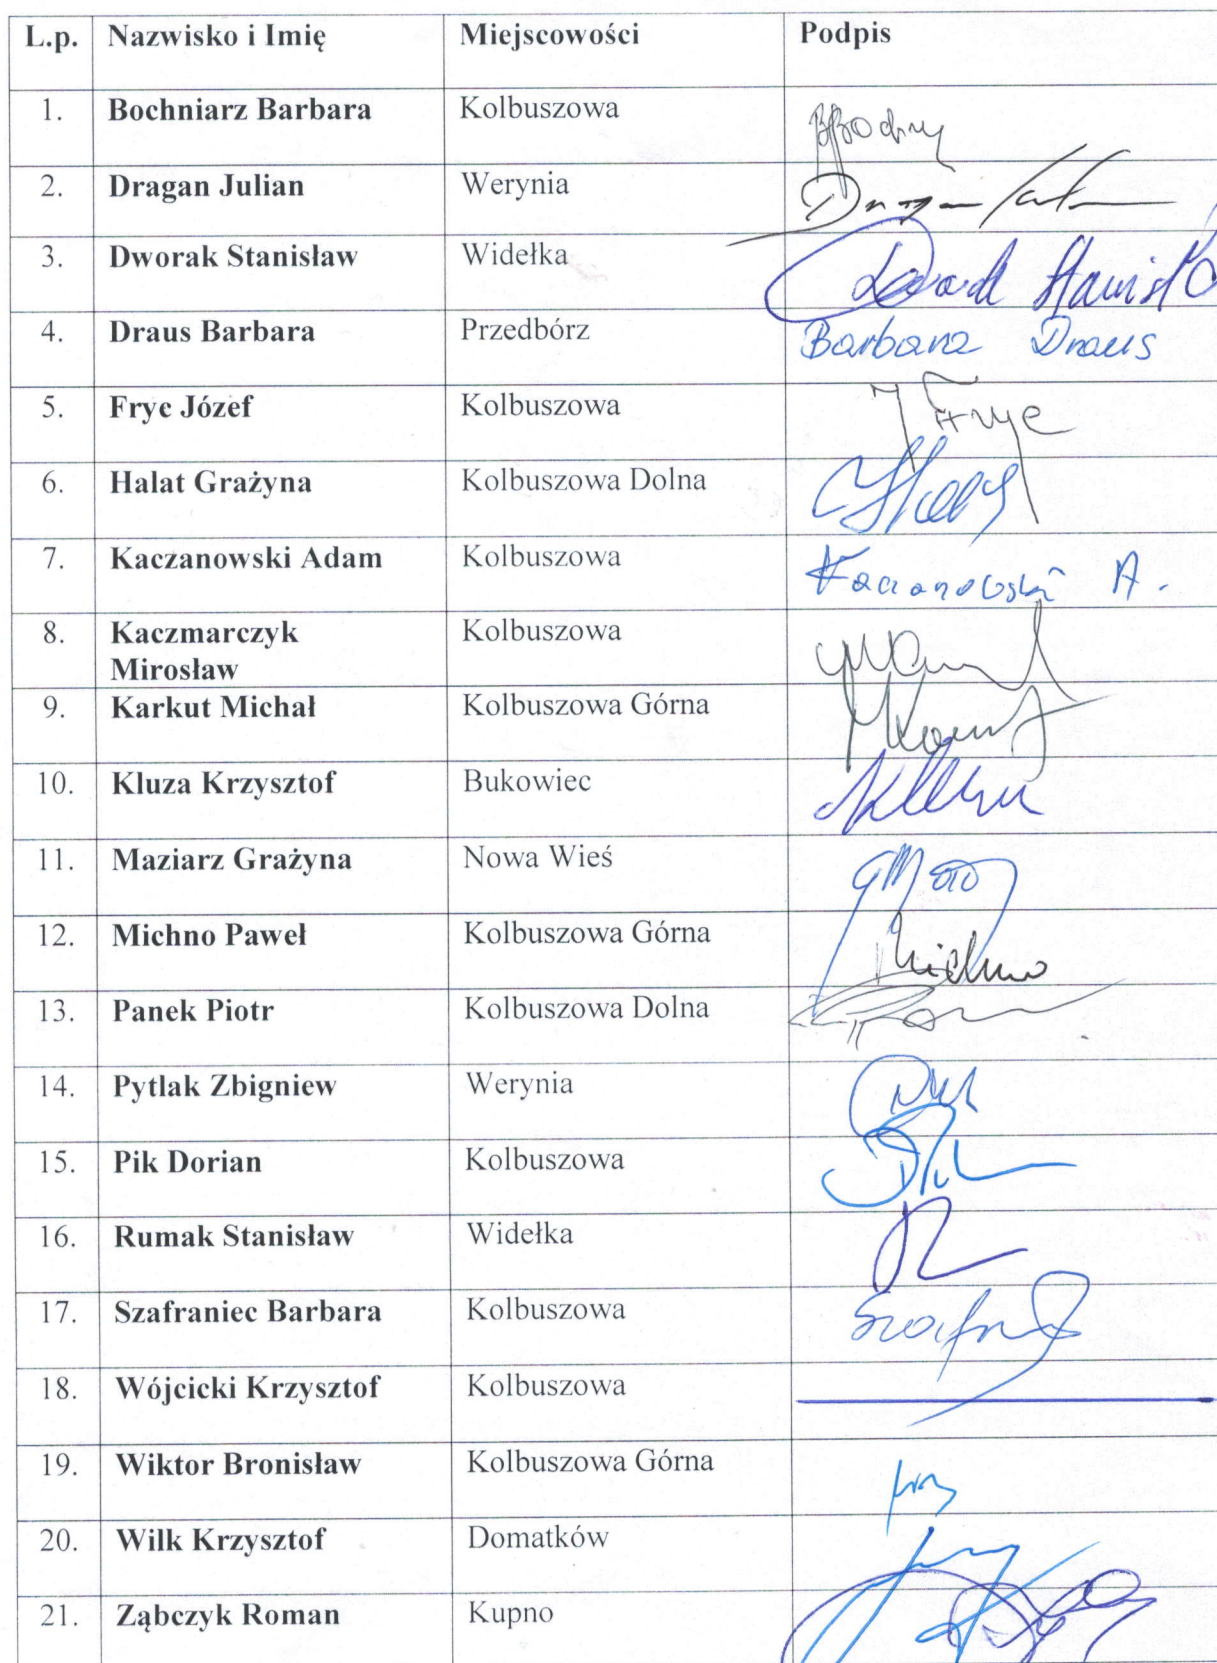 L.p. Nazwisko i Imię Miejscowości Podpis
1. Bochniarz Barbara Kolbuszowa
2. Dragan Julian Werynia Dragan
3. Dworak Stanisław Widełka
4. Draus Barbara Przedbórz Barbara Draus
5. Fryc Józef Kolbuszowa J Fryc
6. Halat Grażyna Kolbuszowa Dolna
7. Kaczanowski Adam Kolbuszowa Kaczanowski A.
8. Kaczmarczyk Kolbuszowa
Mirosław
9. Karkut Michał Kolbuszowa Górna
10. Kluza Krzysztof Bukowiec
11. Maziarz Grażyna Nowa Wieś
12. Michno Paweł Kolbuszowa Górna Michno
13. Panek Piotr Kolbuszowa Dolna
14. Pytlak Zbigniew Werynia
15. Pik Dorian Kolbuszowa
16. Rumak Stanisław Widełka
17. Szafraniec Barbara Kolbuszowa
18. Wójcicki Krzysztof Kolbuszowa
19. Wiktor Bronisław Kolbuszowa Górna
20. Wilk Krzysztof Domatków
21. Ząbczyk Roman Kupno